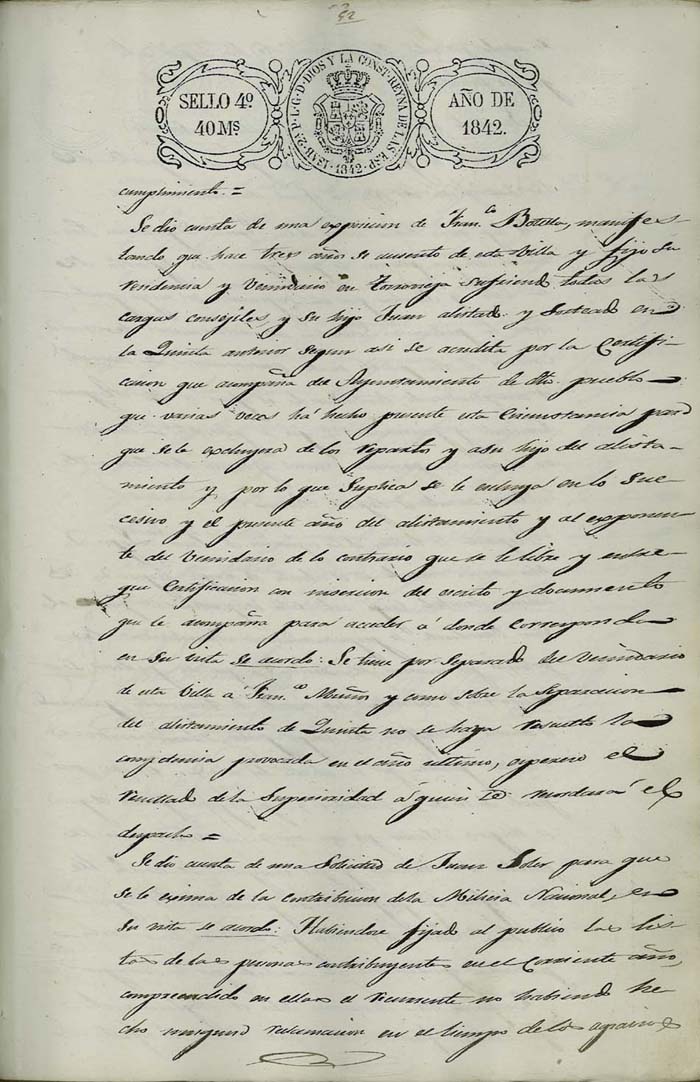 52
SELLO 4º
40 Ms
ISAB. 2ª P. L. G. D. DIOS Y LA CONST. REYNA DE LAS ESP.
1842
AÑO DE
1842.
cumplimiento. =
Se dio cuenta de una exposicion de Fran.co Botella, manifes
tando que hace tres años se ausento de esta Villa y fijo su
rendencia y Vecindario en Torrevieja sufriendo todas las
cargas consejiles, y su hijo Juan alistado y Sorteado en
la Quinta anterior segun asi se acredita por la Certifi-
cacion que acompaña del Ayuntamiento de dho. pueblo
que varias veces há hecho presente esta Circunstancia para
que se le excluyera de los repartos y a su hijo del alista-
miento y por lo que Suplica se le excluya en lo Suc-
cesivo y el presente año del alistamiento y al exponen-
te del Vecindario de lo contrario que se le libre y entre
gue Certificacion con insercion del escrito y documento
que le acompaña para acudir á donde Corresponda
en Su vista se acordo: Se tiene por Separado del Vecindario
de esta Villa á Fran.co Muñoz y como sobre la Separacion
del alistamiento de Quinta no se haya resuelto la
competencia provocada en el año ultimo, esperese el
resultado de la Superioridad á quien se recordará el
despacho =
Se dio cuenta de una Solicitud de Juan Soler para que
se le exima de la contribucion de la Milicia Nacional, en
Su vista se acordo: Habiendose fijado al publico las lis-
tas de las personas contribuyentes en el Corriente año,
comprendido en ellas el recurrente no habiendo he-
cho ninguna reclamacion en el tiempo de los agravios